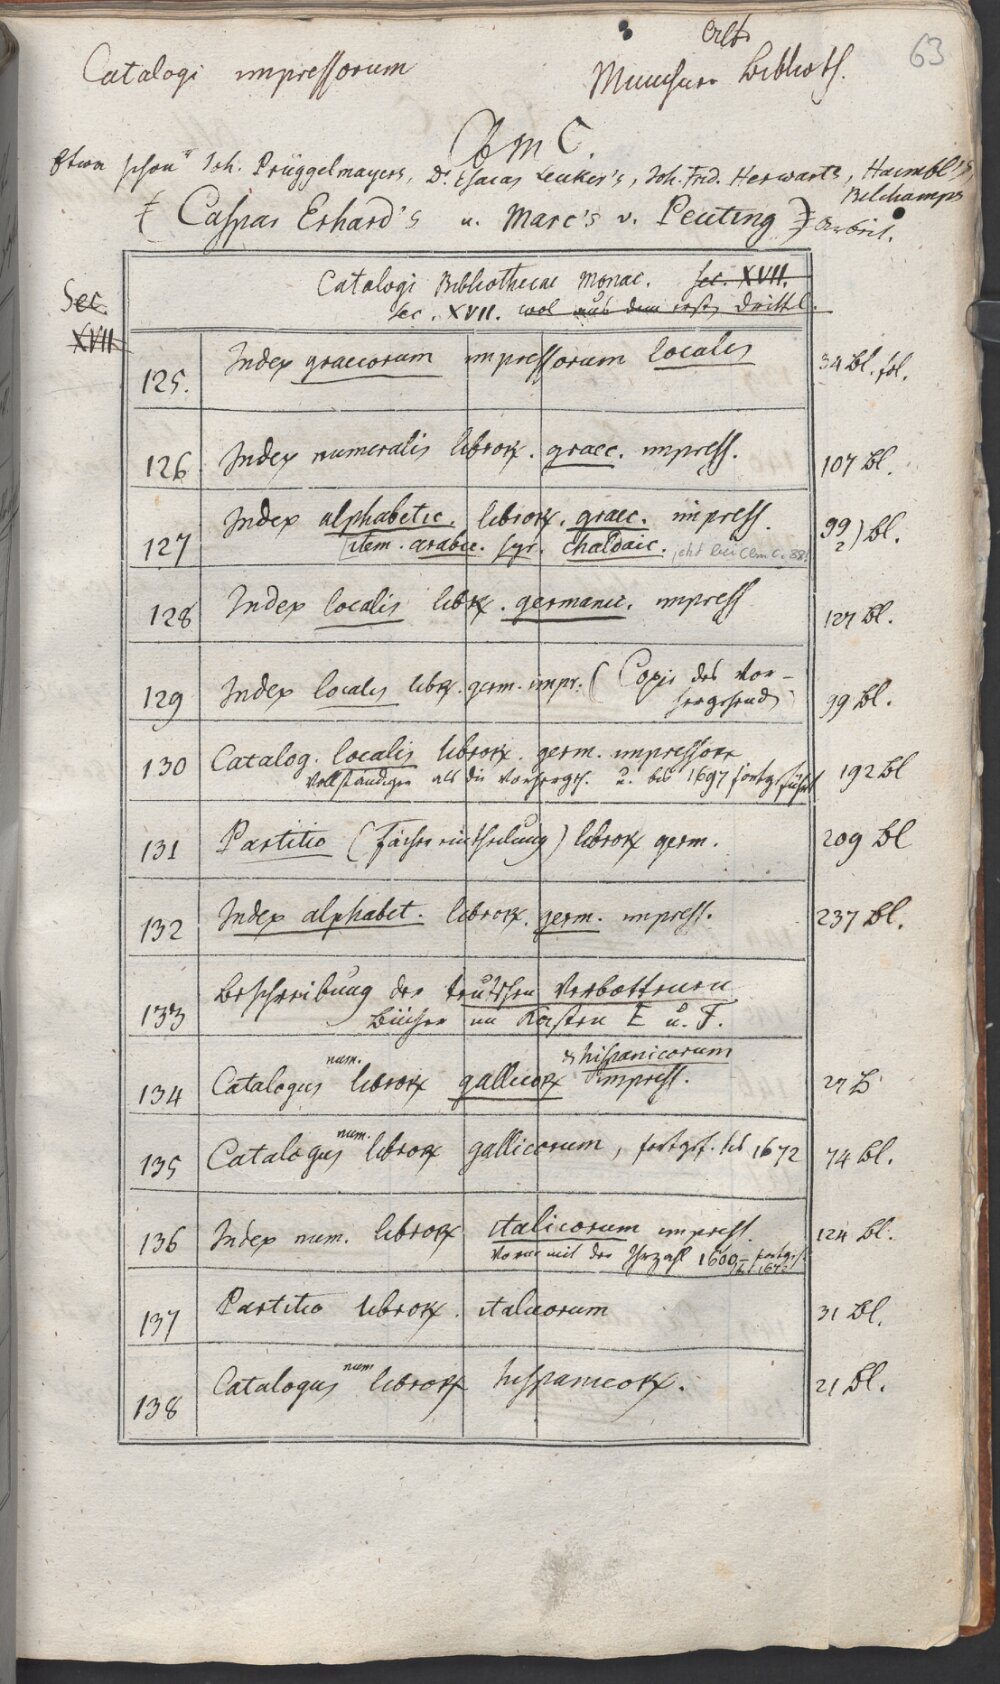 63
Catalogi impressorum
Münchner Biblioth.
CbmC.
Etwa schon Joh. Prüggelmayers, Dr. Esaias Leuker's, Joh. Frid. Herwarts, Haimbl's,
Belchamps
{ Caspar Erhard's u. Marc's v. Peuting } Arbeit.
Catalogi Bibliothecae Monac. Sec. XVII.
Sec. XVII. wol aus dem erst. Drittel.
Sec.
XVII
125. Index graecorum impressorum localis 34 Bl. fol.
126. Index numeralis libror. graec. impress. 107 Bl.
127 Index alphabetic. libror. graec. impress. 99/2) Bl.
item. arabic. syr. chaldaic.
128 Index localis libr. germanic. impress 127 Bl.
129 Index localis libr. germ. impr. (Copie des Vor-
hergehend) 99 Bl.
130 Catalog. localis libror. germ. impressorr 192 Bl
Vollständiger als die Vorhergeh. u. bis 1697 fortgeführt
131 Partitio (Fächereintheilung) libror germ. 209 Bl
132 Index alphabet. libror. germ. impress. 237 Bl.
133 Beschreibung der teutschen Verbottenen
Bücher im Kasten E u. F.
134 Catalogus num. libror gallicor & hispanicorum impress. 27 B
135 Catalogus num. libror gallicorum, fortges. bis 1672 74 Bl.
136 Index num. libror italicorum impress. 124 Bl.
Vorne mit der Jahrzahl 1600, fortges.
137 Partitio libror. italicorum 31 Bl.
138 Catalogus num libror hispanicor. 21 Bl.